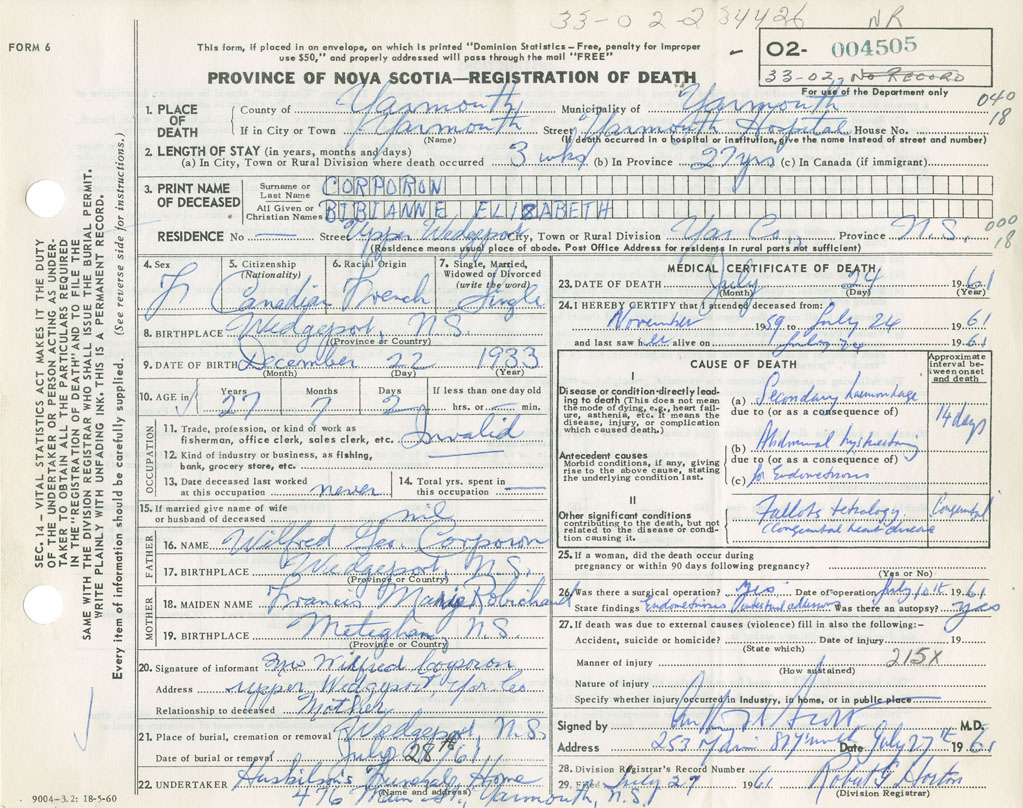 33-02-234426 NR
FORM 6
This form, if placed in an envelope, on which is printed "Dominion Statistics - Free, penalty for improper
use $50," and properly addressed will pass through the mail "FREE"
02- 004505
33-02, No RECORD
For use of the Department only
PROVINCE OF NOVA SCOTIA—REGISTRATION OF DEATH
040
18
1. PLACE OF DEATH County of Yarmouth Municipality of Yarmouth
If in City or Town Yarmouth Street Yarmouth Hospital House No.
(Name) (If death occurred in a hospital or institution, give the name instead of street and number)
2. LENGTH OF STAY (in years, months and days)
(a) In City, Town or Rural Division where death occurred 3 wks (b) In Province 27 yrs (c) In Canada (if immigrant)
3. PRINT NAME OF DECEASED Surname or Last Name CORPORON
All Given or Christian Names BIBIANNE ELIZABETH
RESIDENCE No — Street Upper Wedgeport City, Town or Rural Division Yar Co., Province N.S.
000
18
(Residence means usual place of abode. Post Office Address for residents in rural parts not sufficient)
4. Sex 5. Citizenship (Nationality) 6. Racial Origin 7. Single, Married, Widowed or Divorced (write the word)
F Canadian French Single
8. BIRTHPLACE Wedgeport, NS
(Province or Country)
9. DATE OF BIRTH December 22 1933
(Month) (Day) (Year)
10. AGE in Years Months Days If less than one day old
27 7 2 hrs. or min.
OCCUPATION
11. Trade, profession, or kind of work as
fisherman, office clerk, sales clerk, etc. Invalid
12. Kind of industry or business, as fishing,
bank, grocery store, etc.
13. Date deceased last worked at this occupation never
14. Total yrs. spent in this occupation —
15. If married give name of wife
or husband of deceased nil
FATHER
16. NAME Wilfred Geo. Corporon
17. BIRTHPLACE Wedgeport, N.S.
(Province or Country)
MOTHER
18. MAIDEN NAME Francis Marie Robichaud
19. BIRTHPLACE Meteghan, N.S
(Province or Country)
20. Signature of informant Mrs Wilfred Corporon
Address Upper Wedgeport, Yar Co
Relationship to deceased Mother
21. Place of burial, cremation or removal Wedgeport, N.S.
Date of burial or removal July 28th/61
22. UNDERTAKER Huskilson's Funeral Home
(Name and address)
476 Main St., Yarmouth, N.S.
MEDICAL CERTIFICATE OF DEATH
23. DATE OF DEATH July 24 1961
(Month) (Day) (Year)
24. I HEREBY CERTIFY that I attended deceased from:
November 1959 to July 24 1961
and last saw her alive on July 24 1961
CAUSE OF DEATH
Approximate interval between onset and death
I
Disease or condition directly leading to death (This does not mean the mode of dying, e.g., heart failure, asthenia, etc. It means the disease, injury, or complication which caused death.)
(a) Secondary haemorrhage 14 days
due to (or as a consequence of)
(b) Abdominal hysterectomy
due to (or as a consequence of)
(c) for Endometriosis
Antecedent causes
Morbid conditions, if any, giving rise to the above cause, stating the underlying condition last.
II
Other significant conditions
contributing to the death, but not related to the disease or condition causing it.
Fallots tetrology Congenital
Congenital heart disease
25. If a woman, did the death occur during
pregnancy or within 90 days following pregnancy?
(Yes or No)
26. Was there a surgical operation? Yes Date of operation July 10th 1961
State findings Endometriosis Was there an autopsy? Yes
27. If death was due to external causes (violence) fill in also the following:-
Accident, suicide or homicide? Date of injury 19
(State which)
Manner of injury 215X
(How sustained)
Nature of injury
Specify whether injury occurred in industry, in home, or in public place
Signed by M.D.
Address 253 Main St Date July 27th 1961
28. Division Registrar's Record Number
29. Filed July 27 1961 Robert G Horton
(Division Registrar)
SEC. 14 - VITAL STATISTICS ACT MAKES IT THE DUTY
OF THE UNDERTAKER OR PERSON ACTING AS UNDER-
TAKER TO OBTAIN ALL THE PARTICULARS REQUIRED
IN THE "REGISTRATION OF DEATH" AND TO FILE THE
SAME WITH THE DIVISION REGISTRAR WHO SHALL ISSUE THE BURIAL PERMIT.
WRITE PLAINLY WITH UNFADING INK. THIS IS A PERMANENT RECORD.
Every item of information should be carefully supplied. (See reverse side for instructions.)
9004-3.2: 18-5-60